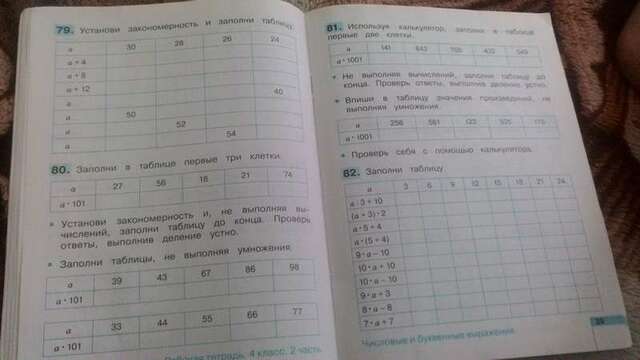 79. Установи закономерность и заполни таблицу.
a 30 28 26 24
a + 4
a + 8
a + 12 40
a 50 52 54
a
a
80. Заполни в таблице первые три клетки.
a 27 56 18 21 74
a · 101
• Установи закономерность и, не выполняя вы-
числений, заполни таблицу до конца. Проверь
ответы, выполнив деление устно.
• Заполни таблицы, не выполняя умножения.
a 39 43 67 86 98
a · 101
a 33 44 55 66 77
a · 101
тетрадь, 4 класс, 2 часть
81. Используя калькулятор, заполни в таблице
первые две клетки.
a 141
a · 1001
• Не выполняя вычислений, заполни таблицу до
конца. Проверь ответы, выполнив деление устно.
• Впиши в таблицу значения произведений, не
выполняя умножения.
a 256 581
a · 1001
• Проверь себя с помощью калькулятора.
82. Заполни таблицу.
a 3 6 9 12 15 18 21 24
a · 3 + 10
(a + 3) · 2
a · 5 + 4
a · (5 + 4)
9 · a − 10
10 · a + 10
10 · a − 10
9 · a + 3
8 · a − 8
7 · a + 7
Числовые и буквенные выражения